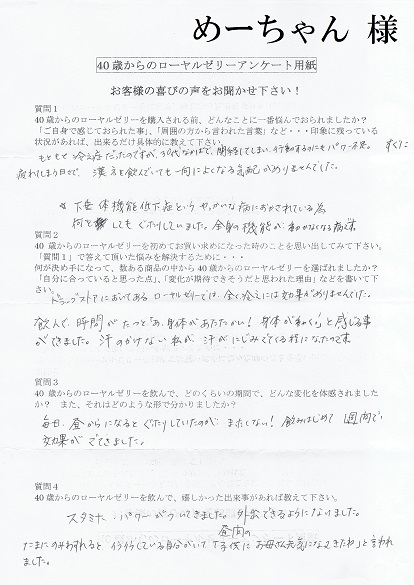 めーちゃん 様
40歳からのローヤルゼリーアンケート用紙
お客様の喜びの声をお聞かせ下さい！
質問１
40歳からのローヤルゼリーを購入される前、どんなことに一番悩んでおられましたか？
「ご自身で感じておられた事」、「周囲の方から言われた言葉」など・・・印象に残っている
状況があれば、出来るだけ具体的に教えて下さい。
もともと冷え症だったのですが、30代なかばで、閉経をしてしまい、行動するのにもパワー不足。すぐに
疲れてしまう日で、漢方を飲んでいても一向によくなる気配がありませんでした。
下垂体機能低下症というやっかいな病におかされている為
何をしてもぐったりしていました。全身の機能が動かなくなる病気
質問２
40歳からのローヤルゼリーを初めてお買い求めになった時のことを思い出してみて下さい。
「質問１」で答えて頂いた悩みを解決するために・・・
何が決め手になって、数ある商品の中から40歳からのローヤルゼリーを選ばれましたか？
「自分に合っていると思った点」、「変化が期待できそうだと思われた理由」などを書いて下
さい。
ドラッグストアにおいてあるローヤルゼリーでは、全く冷えには効果がありませんでした。
飲んで、時間がたつと「あ、身体があたたかい！身体が動く」と感じる事
ができました。汗のかけない私が汗がにじみでてくる程になたのです
質問３
40歳からのローヤルゼリーを飲んで、どのくらいの期間で、どんな変化を体感されました
か？ また、それはどのような形で分かりましたか？
毎日、昼からになるとぐったりしていたのが、まったくない！飲みはじめて1週間で
効果がでてきました。
質問４
40歳からのローヤルゼリーを飲んで、嬉しかった出来事があれば教えて下さい。
スタミナ・パワーがついてきました。外出できるようになりました。
たまにのみわすれると、イライラしている自分がいて「昼間の
子供にお母さん元気になってきたね」と言われ
ました。